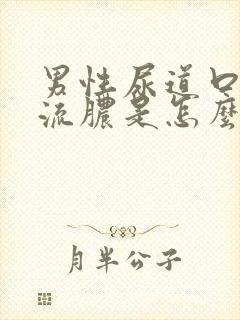 男性尿道口
流膿是怎麼
月半公子